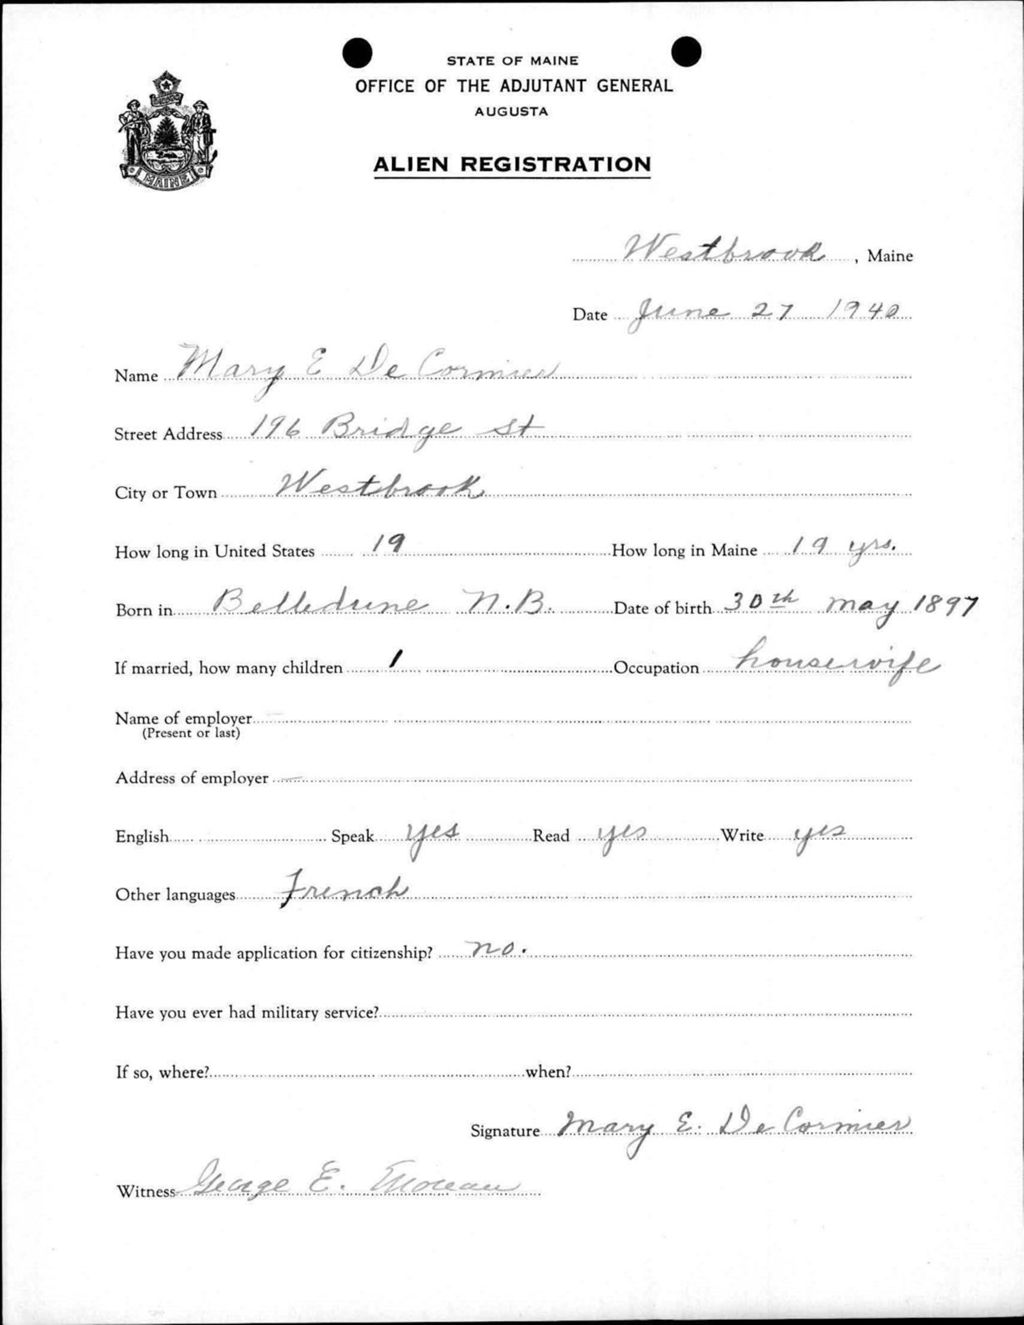 STATE OF MAINE
OFFICE OF THE ADJUTANT GENERAL
AUGUSTA
ALIEN REGISTRATION
MAINE
Westbrook, Maine
Date June 27 1940
Name Mary E De Cormier
Street Address 196 Bridge St
City or Town Westbrook
How long in United States 19 How long in Maine 19 yrs.
Born in Belledune N.B. Date of birth 30th may 1897
If married, how many children 1 Occupation housewife
Name of employer —
(Present or last)
Address of employer —
English Speak yes Read yes Write yes
Other languages French
Have you made application for citizenship? no.
Have you ever had military service?
If so, where? when?
Signature Mary E. De Cormier
Witness George E. Moreau